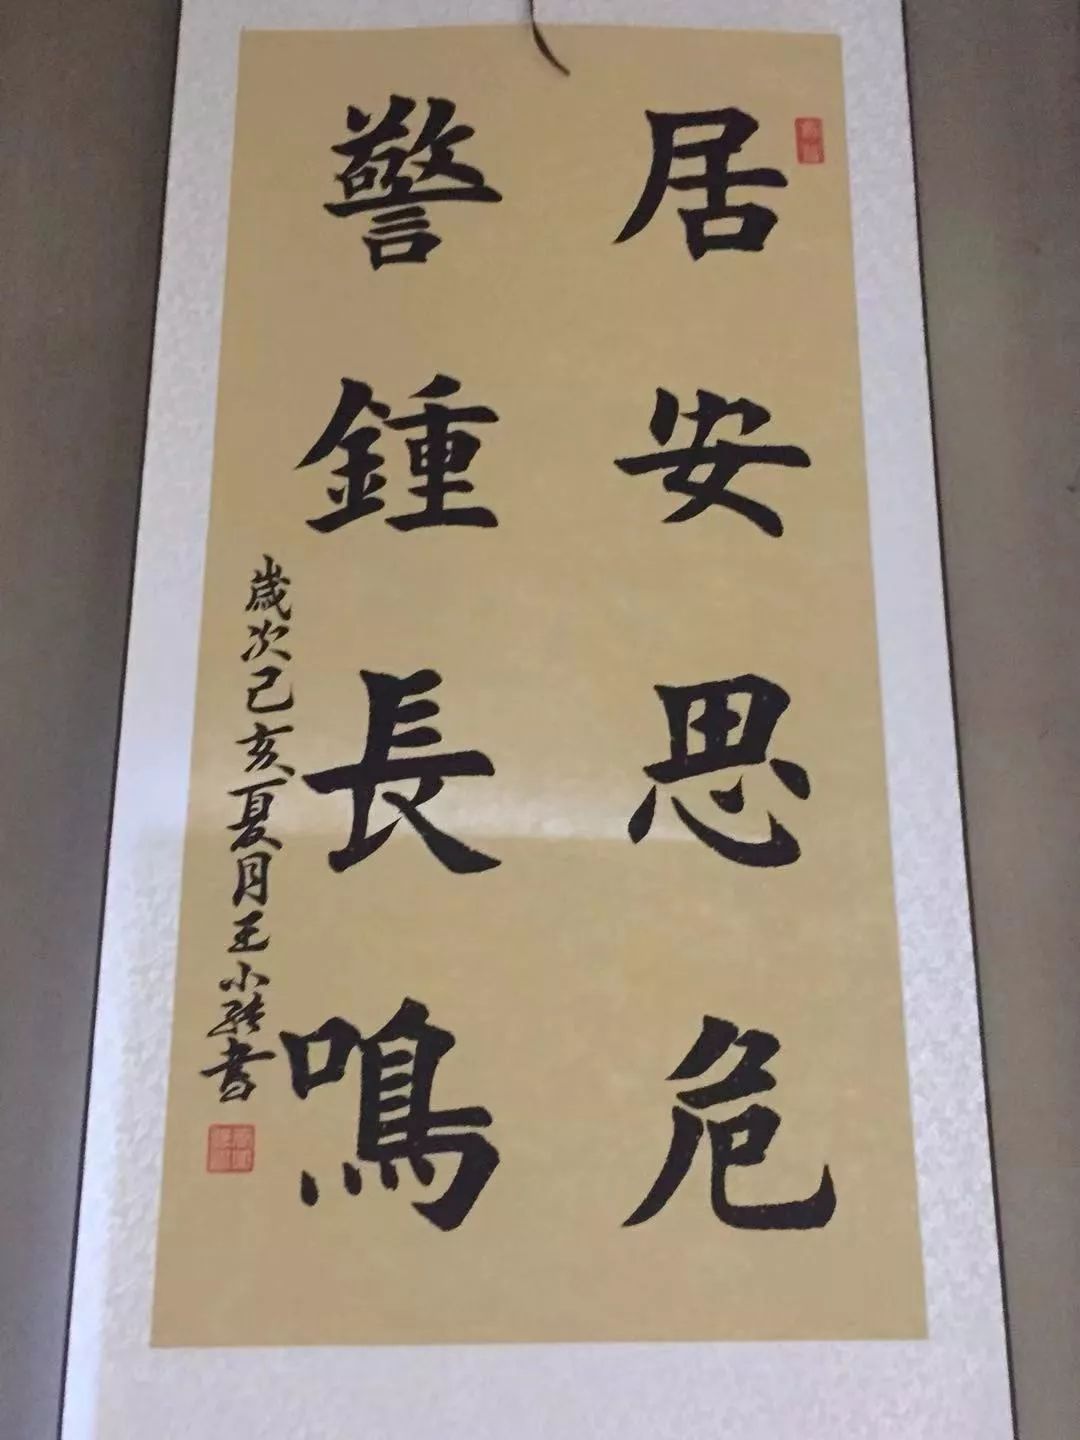 居安思危
警鍾長鳴
歲次己亥夏月王小
書